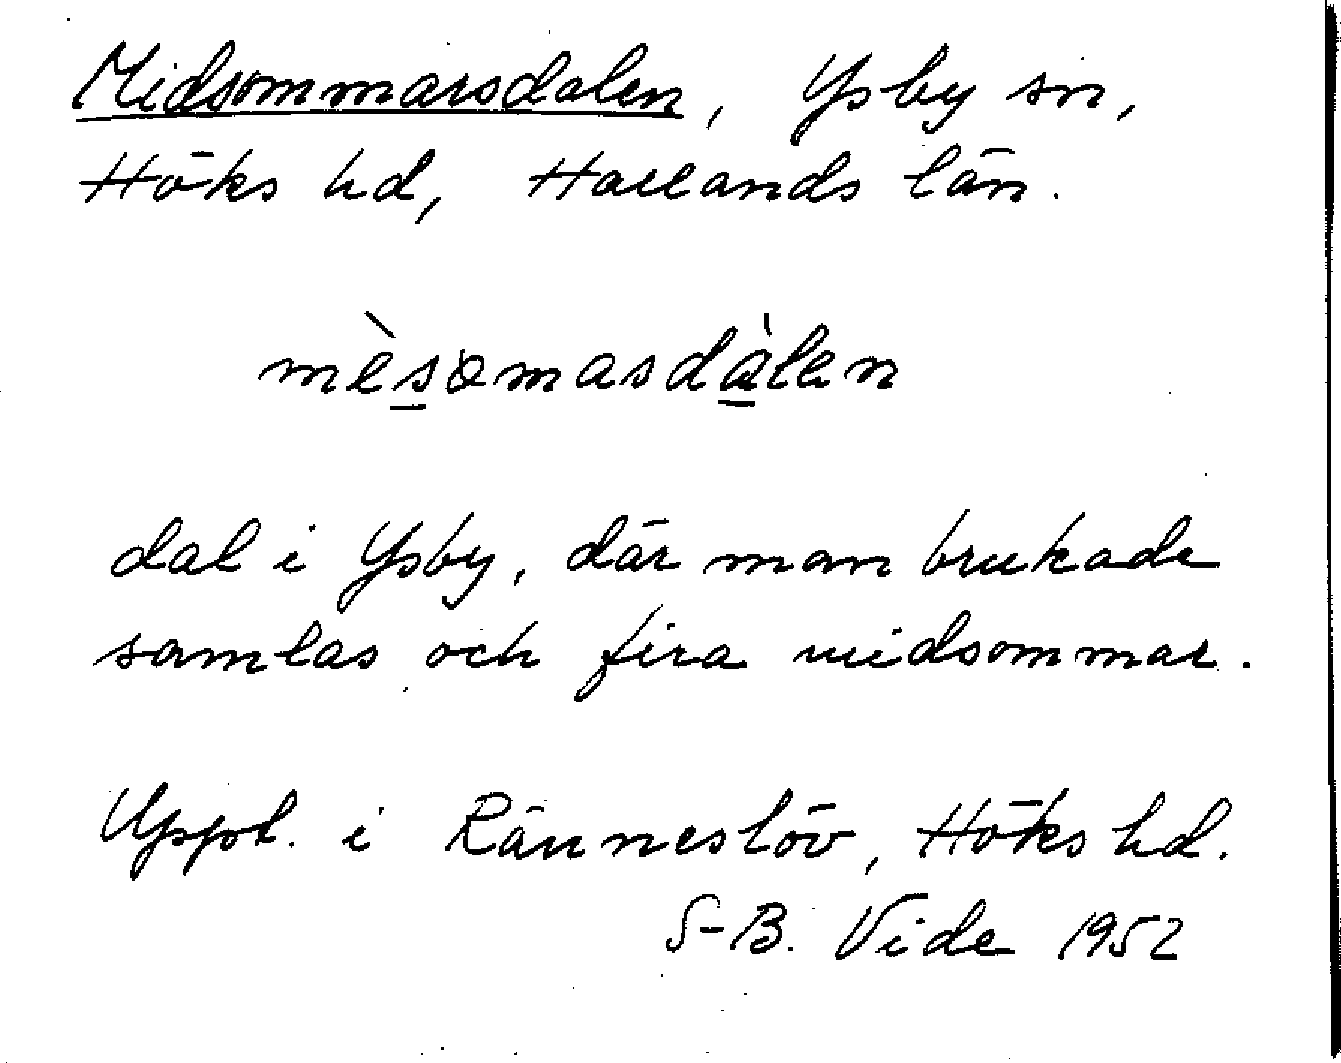 Midsommarsdalen, Ysby sn,
Höks hd, Hallands län.
mèsomasdàlen
dal i Ysby, där man brukade
samlas och fira midsommar.
Uppt. i Ränneslöv, Höks hd.
S-B. Vide 1952